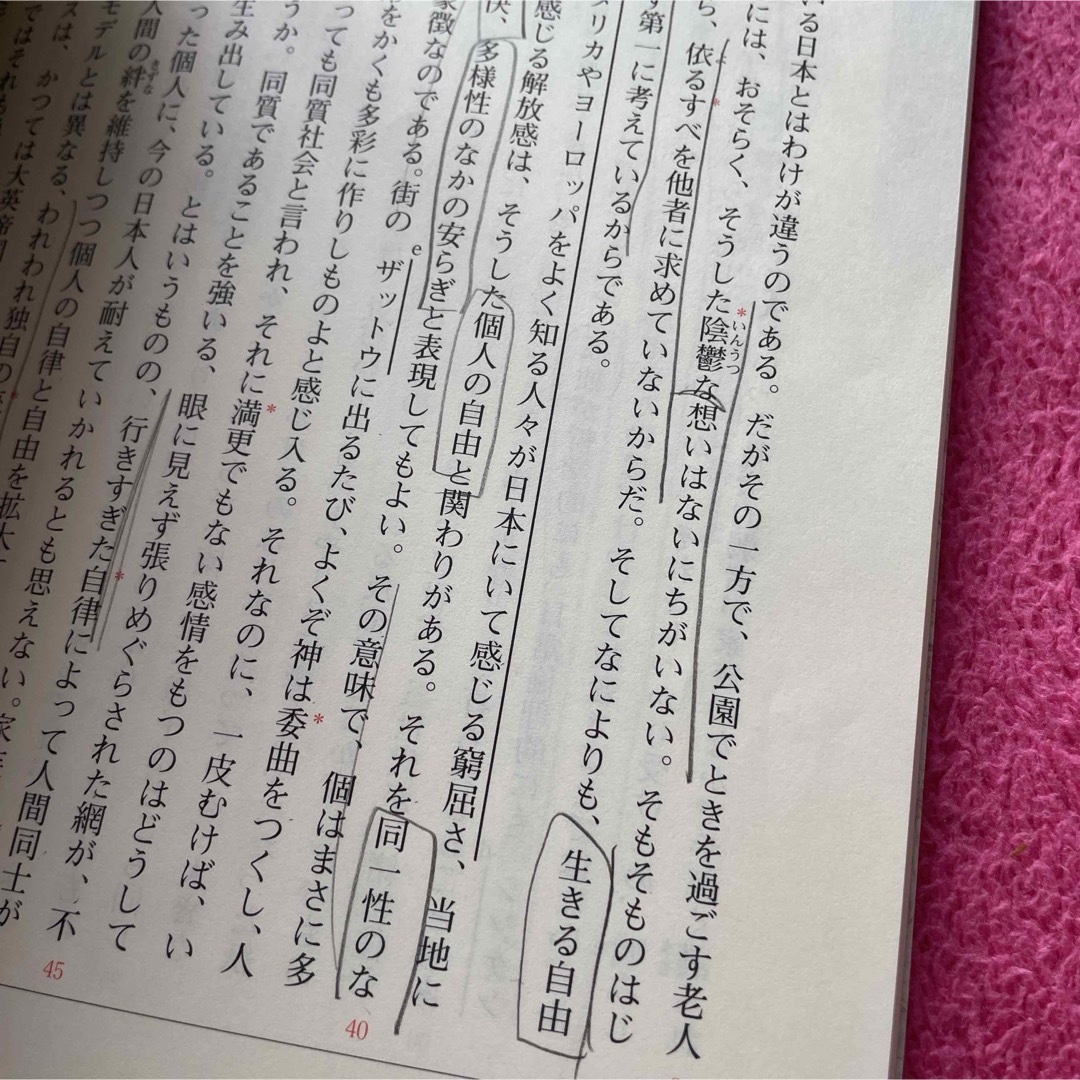 いる日本とはわけが違うのである。だがその一方で、公園でときを過ごす老人
には、おそらく、そうした陰鬱な想いはないにちがいない。そもそものはじ
いんうつ
ら、依るすべを他者に求めていないからだ。そしてなによりも、生きる自由
よ
ず第一に考えているからである。
メリカやヨーロッパをよく知る人々が日本にいて感じる窮屈さ、当地に
感じる解放感は、そうした個人の自由と関わりがある。それを同一性のな
快、多様性のなかの安らぎと表現してもよい。その意味で、個はまさに多
象徴なのである。街のザットウに出るたび、よくぞ神は委曲をつくし、人
e
をかくも多彩に作りしものよと感じ入る。それなのに、一皮むけば、い
っても同質社会と言われ、それに満更でもない感情をもつのはどうして
うか。同質であることを強いる、眼に見えず張りめぐらされた網が、不
生み出している。とはいうものの、行きすぎた自律によって人間同士が
った個人に、今の日本人が耐えていかれるとも思えない。家
人間の絆を維持しつつ個人の自律と自由を拡大
きずな
モデルとは異なる、われわれ独自の
スは、かつては大英帝国
ではそれも
40
45